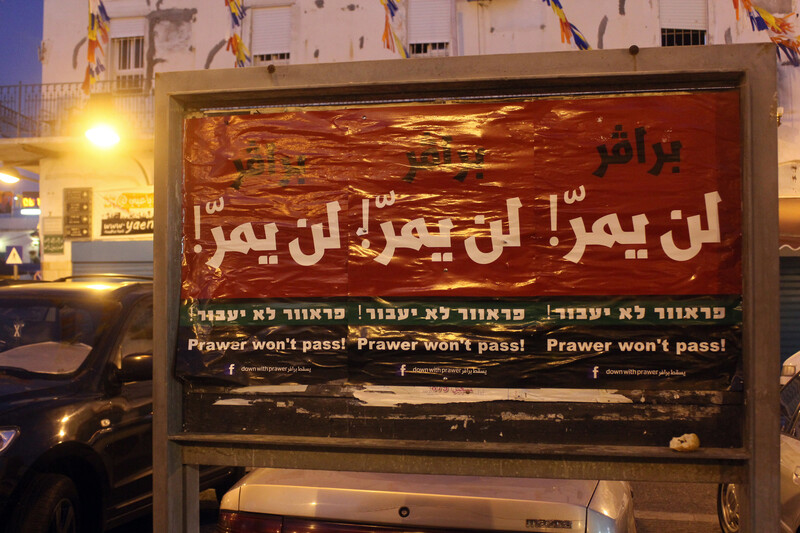 براڤر
لن يمرّ!
פראוור לא יעבור!
Prawer won't pass!
f down with prawer يسقط براڤر
براڤر
لن يمرّ!
פראוור לא יעבור!
Prawer won't pass!
f down with prawer يسقط براڤر
براڤر
لن يمرّ!
פראוור לא יעבור!
Prawer won't pass!
f down with prawer يسقط براڤر
mazda